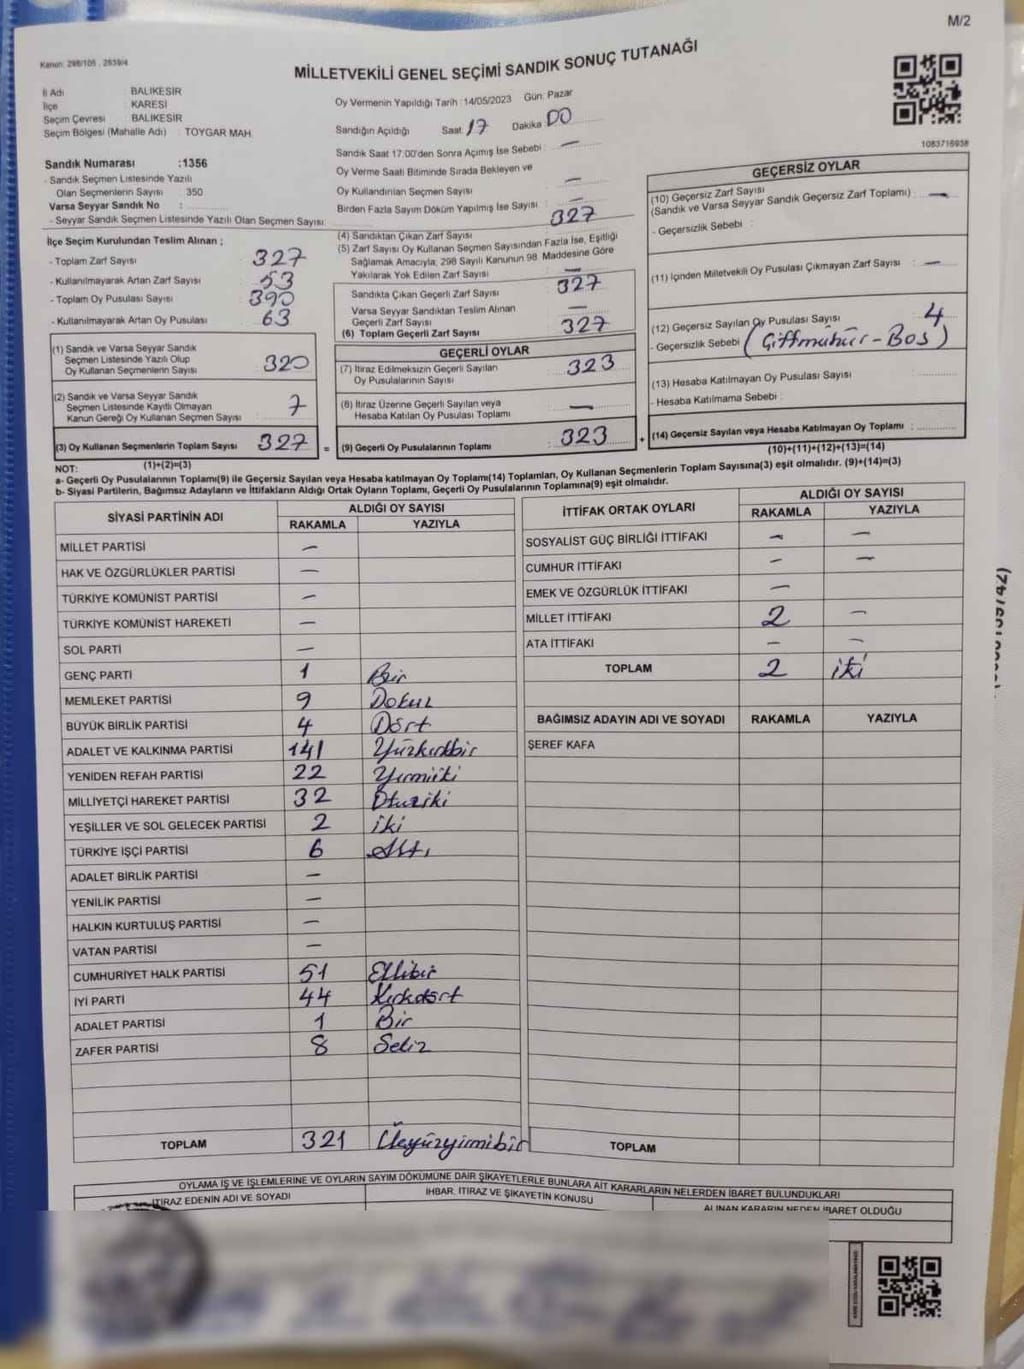 M/2
Kanun: 298/105 , 2839/4
MİLLETVEKİLİ GENEL SEÇİMİ SANDIK SONUÇ TUTANAĞI
İl Adı : BALIKESİR
İlçe : KARESİ
Seçim Çevresi : BALIKESİR
Seçim Bölgesi (Mahalle Adı) : TOYGAR MAH.
Sandık Numarası :1356
- Sandık Seçmen Listesinde Yazılı
Olan Seçmenlerin Sayısı : 350
Varsa Seyyar Sandık No :
- Seyyar Sandık Seçmen Listesinde Yazılı Olan Seçmen Sayısı:
Oy Vermenin Yapıldığı Tarih :14/05/2023 Gün: Pazar
Sandığın Açıldığı Saat: 17 Dakika 00
Sandık Saat 17:00'den Sonra Açımış İse Sebebi : —
Oy Verme Saati Bitiminde Sırada Bekleyen ve
Oy Kullandırılan Seçmen Sayısı : —
Birden Fazla Sayım Döküm Yapılmış İse Sayısı : —
1083716938
İlçe Seçim Kurulundan Teslim Alınan ;
- Toplam Zarf Sayısı : 327
- Kullanılmayarak Artan Zarf Sayısı : 53
- Toplam Oy Pusulası Sayısı : 390
- Kullanılmayarak Artan Oy Pusulası : 63
(1) Sandık ve Varsa Seyyar Sandık
Seçmen Listesinde Yazılı Olup
Oy Kullanan Seçmenlerin Sayısı : 320
(2) Sandık ve Varsa Seyyar Sandık
Seçmen Listesinde Kayıtlı Olmayan
Kanun Gereği Oy Kullanan Seçmen Sayısı : 7
(3) Oy Kullanan Seçmenlerin Toplam Sayısı : 327
(1)+(2)=(3)
(4) Sandıktan Çıkan Zarf Sayısı : 327
(5) Zarf Sayısı Oy Kullanan Seçmen Sayısından Fazla İse, Eşitliği
Sağlamak Amacıyla, 298 Sayılı Kanunun 98. Maddesine Göre
Yakılarak Yok Edilen Zarf Sayısı : —
Sandıkta Çıkan Geçerli Zarf Sayısı : 327
Varsa Seyyar Sandıktan Teslim Alınan
Geçerli Zarf Sayısı : —
(6) Toplam Geçerli Zarf Sayısı : 327
GEÇERLİ OYLAR
(7) İtiraz Edilmeksizin Geçerli Sayılan
Oy Pusulalarının Sayısı : 323
(8) İtiraz Üzerine Geçerli Sayılan veya
Hesaba Katılan Oy Pusulası Toplamı : —
= (9) Geçerli Oy Pusulalarının Toplamı : 323
GEÇERSİZ OYLAR
(10) Geçersiz Zarf Sayısı
(Sandık ve Varsa Seyyar Sandık Geçersiz Zarf Toplamı) : —
- Geçersizlik Sebebi :
(11) İçinden Milletvekili Oy Pusulası Çıkmayan Zarf Sayısı : —
(12) Geçersiz Sayılan Oy Pusulası Sayısı : 4
- Geçersizlik Sebebi : (Çiftmühür-Boş)
(13) Hesaba Katılmayan Oy Pusulası Sayısı :
- Hesaba Katılmama Sebebi :
+ (14) Geçersiz Sayılan veya Hesaba Katılmayan Oy Toplamı :
(10)+(11)+(12)+(13)=(14)
NOT:
a- Geçerli Oy Pusulasının Toplamı(9) ile Geçersiz Sayılan veya Hesaba katılmayan Oy Toplamı(14) Toplamları, Oy Kullanan Seçmenlerin Toplam Sayısına(3) eşit olmalıdır. (9)+(14)=(3)
b- Siyasi Partilerin, Bağımsız Adayların ve İttifakların Aldığı Ortak Oyların Toplamı, Geçerli Oy Pusulalarının Toplamına(9) eşit olmalıdır.
SİYASİ PARTİNİN ADI ALDIĞI OY SAYISI
RAKAMLA YAZIYLA
MİLLET PARTİSİ —
HAK VE ÖZGÜRLÜKLER PARTİSİ —
TÜRKİYE KOMÜNİST PARTİSİ —
TÜRKİYE KOMÜNİST HAREKETİ —
SOL PARTİ —
GENÇ PARTİ 1 Bir
MEMLEKET PARTİSİ 9 Dokuz
BÜYÜK BİRLİK PARTİSİ 4 Dört
ADALET VE KALKINMA PARTİSİ 141 Yüzkırkbir
YENİDEN REFAH PARTİSİ 22 Yirmiiki
MİLLİYETÇİ HAREKET PARTİSİ 32 Otuziki
YEŞİLLER VE SOL GELECEK PARTİSİ 2 iki
TÜRKİYE İŞÇİ PARTİSİ 6 Altı
ADALET BİRLİK PARTİSİ —
YENİLİK PARTİSİ —
HALKIN KURTULUŞ PARTİSİ —
VATAN PARTİSİ —
CUMHURİYET HALK PARTİSİ 51 Ellibir
İYİ PARTİ 44 Kırkdört
ADALET PARTİSİ 1 Bir
ZAFER PARTİSİ 8 Sekiz
TOPLAM 321 Üçyüzyirmibir
İTTİFAK ORTAK OYLARI ALDIĞI OY SAYISI
RAKAMLA YAZIYLA
SOSYALİST GÜÇ BİRLİĞİ İTTİFAKI — —
CUMHUR İTTİFAKI — —
EMEK VE ÖZGÜRLÜK İTTİFAKI —
MİLLET İTTİFAKI 2 —
ATA İTTİFAKI — —
TOPLAM 2 iki
BAĞIMSIZ ADAYIN ADI VE SOYADI RAKAMLA YAZIYLA
ŞEREF KAFA
TOPLAM
OYLAMA İŞ VE İŞLEMLERİNE VE OYLARIN SAYIM DÖKÜMÜNE DAİR ŞİKAYETLERLE BUNLARA AİT KARARLARIN NELERDEN İBARET BULUNDUKLARI
İTİRAZ EDENİN ADI VE SOYADI
İHBAR, İTİRAZ VE ŞİKAYETİN KONUSU
ALINAN KARARIN NEDEN İBARET OLDUĞU